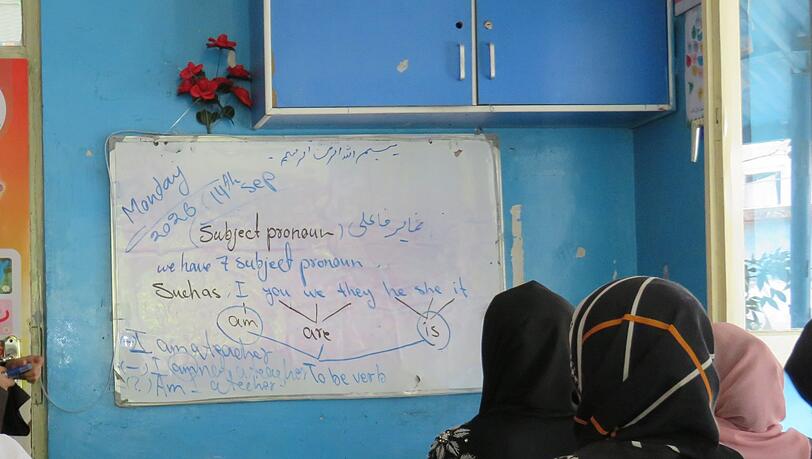 بسم الله الرحمن الرحیم
Monday
14th Sep
2026
(Subject pronoun) ضمایر فاعلی
we have 7 subject pronoun
Such as, I you we they he she it
am are is
I am a teacher
(-) I am not a teacher To be verb
(?) Am - a teacher